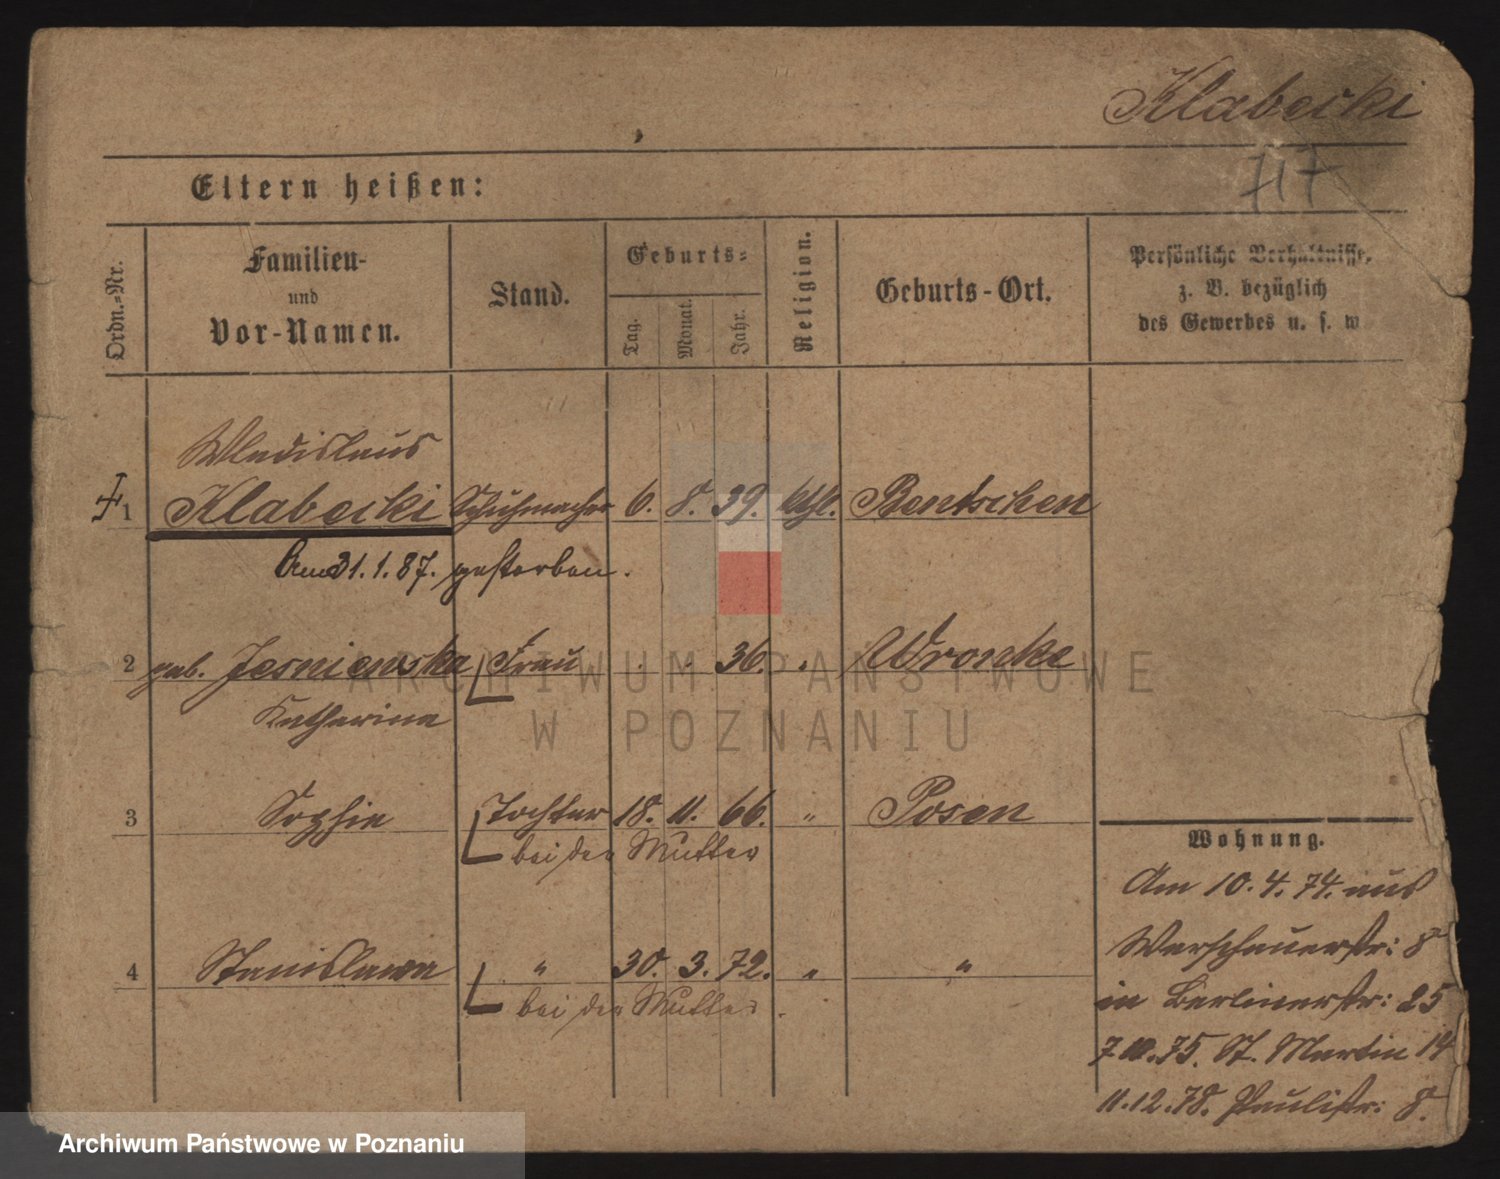 Klabecki
717
Eltern heißen:
Ordn.-Nr.
Familien-
und
Vor-Namen.
Stand.
Geburts-
Tag.
Monat.
Jahr.
Religion.
Geburts-Ort.
Persönliche Verhältnisse,
z. B. bezüglich
des Gewerbes u. s. w
Wladislaus
1 Klabecki Schuhmacher 6. 8. 39. kth. Bentschen
Am 31.1.87. gestorben.
2 geb. Jesniewska Frau . . 36. " Wronke
Katharina
3 Sophie Tochter 18. 11. 66. " Posen
bei der Mutter
4 Stanislawa " 30. 3. 72. " "
bei der Mutter.
Wohnung.
Am 10.4.74. aus
Warschauerstr: 8
in Berlinerstr: 25
7.10.75. St. Martin 14
11.12.78. Paulistr: 8.
ARCHIWUM PAŃSTWOWE
W POZNANIU
Archiwum Państwowe w Poznaniu